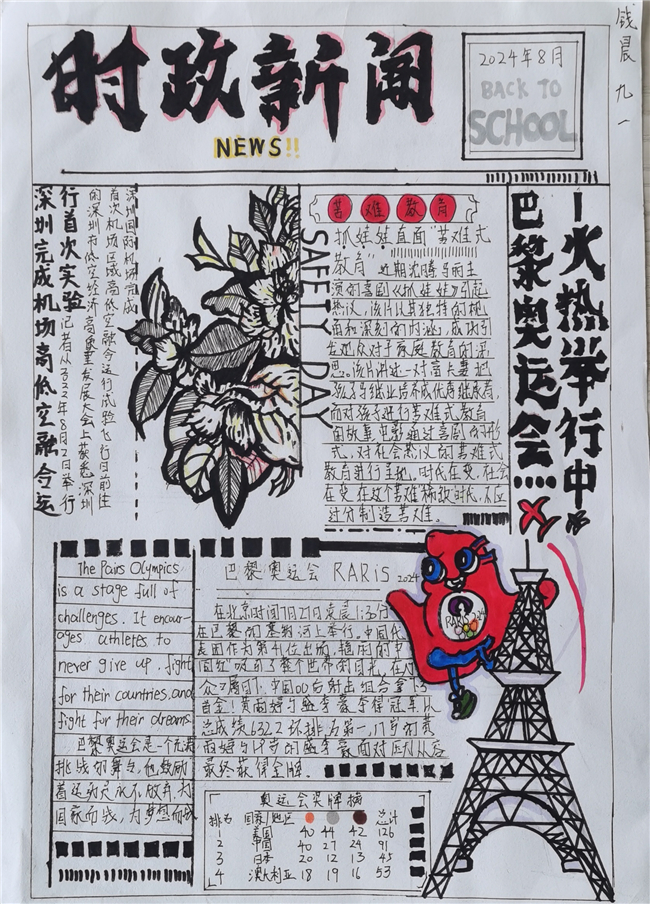 钱晨 九一
时政新闻
NEWS!!
2024年8月
BACK TO
SCHOOL
深圳完成机场高低空融合运
行首次实验
记者从322年8月2日举行
的深圳市低空经济高质量发展大会上获悉深圳
首次机场区域高低空融合运行试验飞行日前在
深圳国际机场完成
SAFETY DAY
苦难教育
抓娃娃直面"苦难式
教育" 近期沈腾马丽主
演的喜剧《抓娃娃》引起
热议,该片以其独特的视
角和深刻的内涵,成功引
发观众对于家庭教育的深
思。该片讲述一对富太妻把
孩子马继业培养成优秀继承者,
而对孩子进行苦难式教育
的故事电影通过喜剧的形
式,对社会热议的苦难式
教育进行主地。时代在变,社会
在变在这个苦难稀放时代,不应
过分制造苦难。
巴黎奥运会....
火热举行中
The Pairs Olympics
is a stage full of
challenges. It encour-
ages athletes to
never give up, fight
for their countries,and
fight for their dreams
巴黎奥运会是一个充满
挑战的舞台,他激励
着运动员永不放弃,为
国家而战,为梦想而战
巴黎奥运会 RARiS 2024
在北京时间7月27日凌晨1:30分
在巴黎的塞纳河上举行。中国代
表团作为第41位出场,穩闹的中
国红吸引了整个世界的目光,在
众瞩目下,中国00后射击组合拿下
首金!黄雨婷与盛李豪夺得冠军以
总成绩632.2环排名第一,17岁的黄
雨婷与19岁的盛李豪面对压力从容
最终获得金牌.
PARIS 2024
奥运会奖牌榜
排名 国家/地区 总计
1 美国 40 44 42 126
2 中国 40 27 24 91
3 日本 20 12 13 45
4 澳大利亚 18 19 16 53